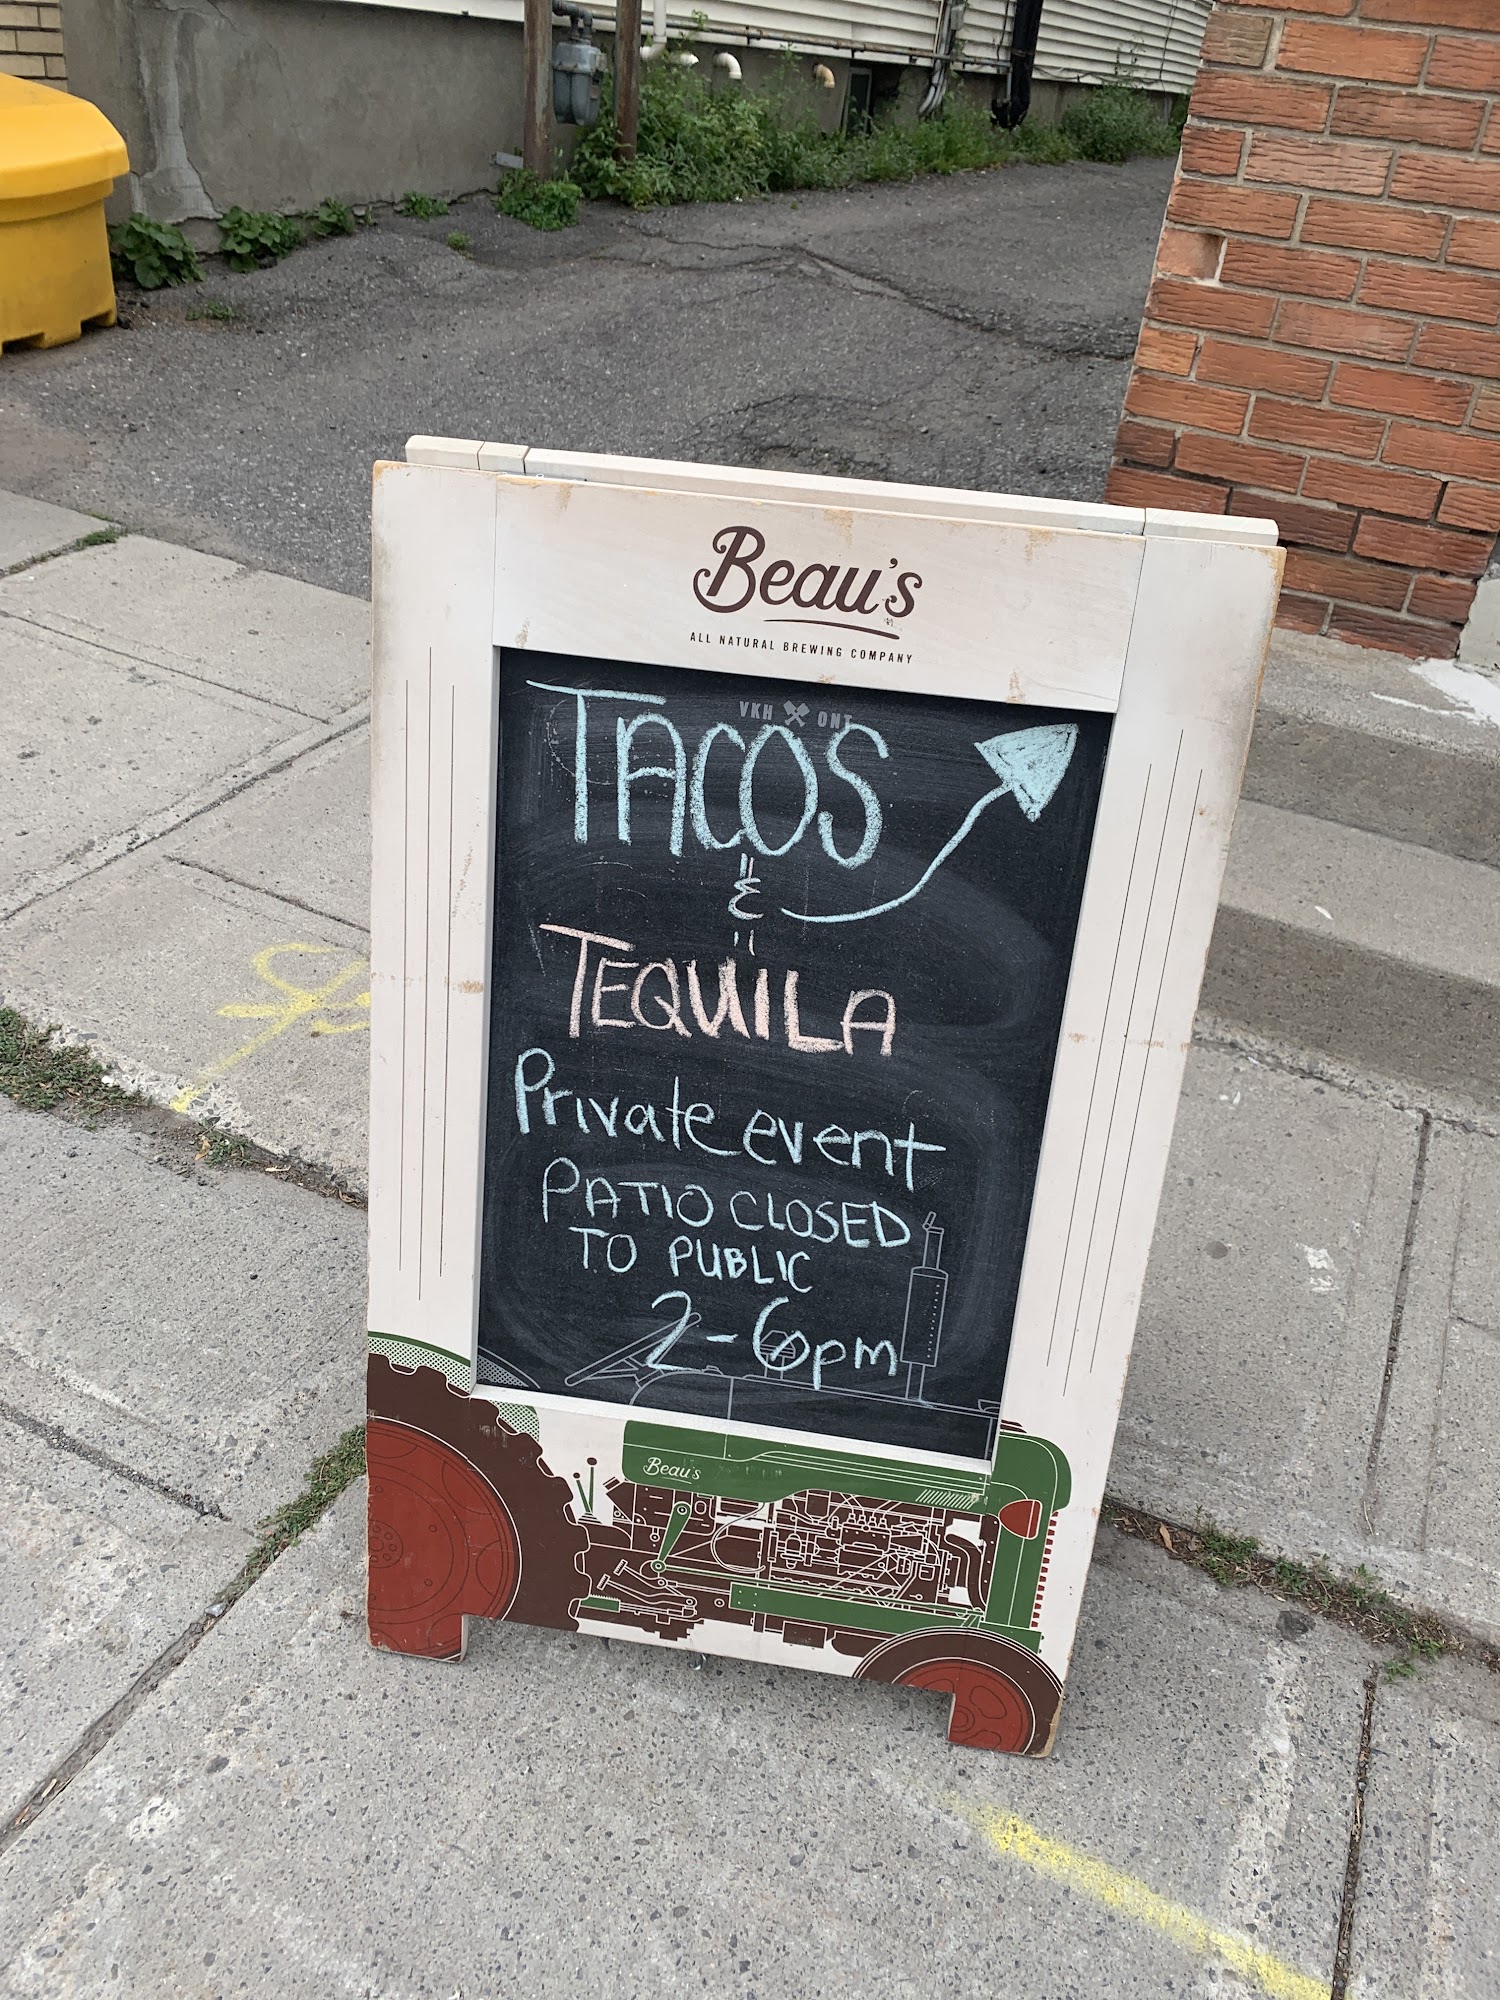 Beau's
ALL NATURAL BREWING COMPANY
VKH ONT
TACOS
&
TEQUILA
Private event
PATIO CLOSED
TO PUBLIC
2-6pm
Beau's